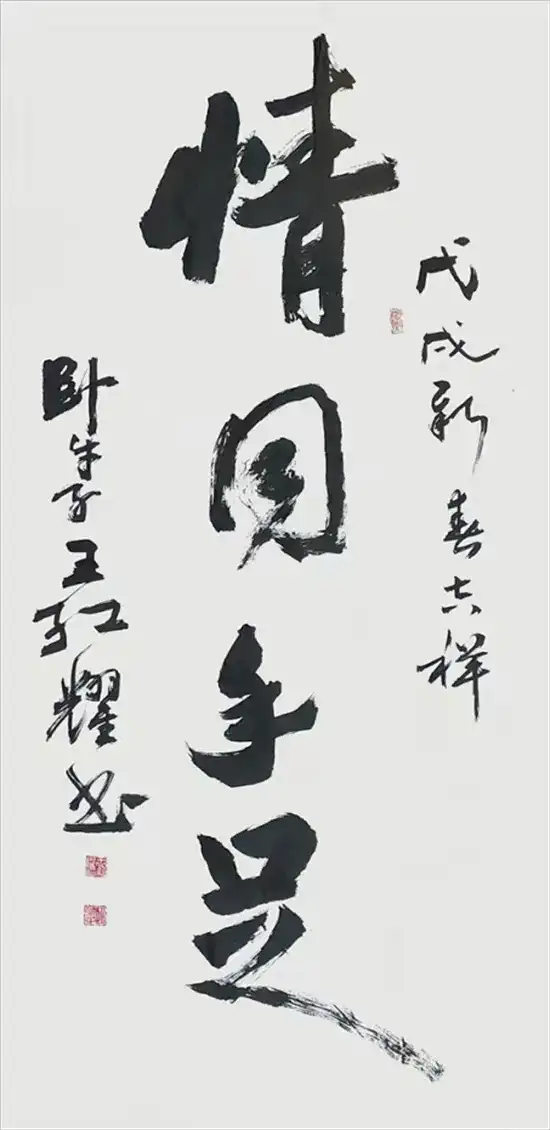 戊戌新春吉祥
情同手足
卧牛子王红耀书